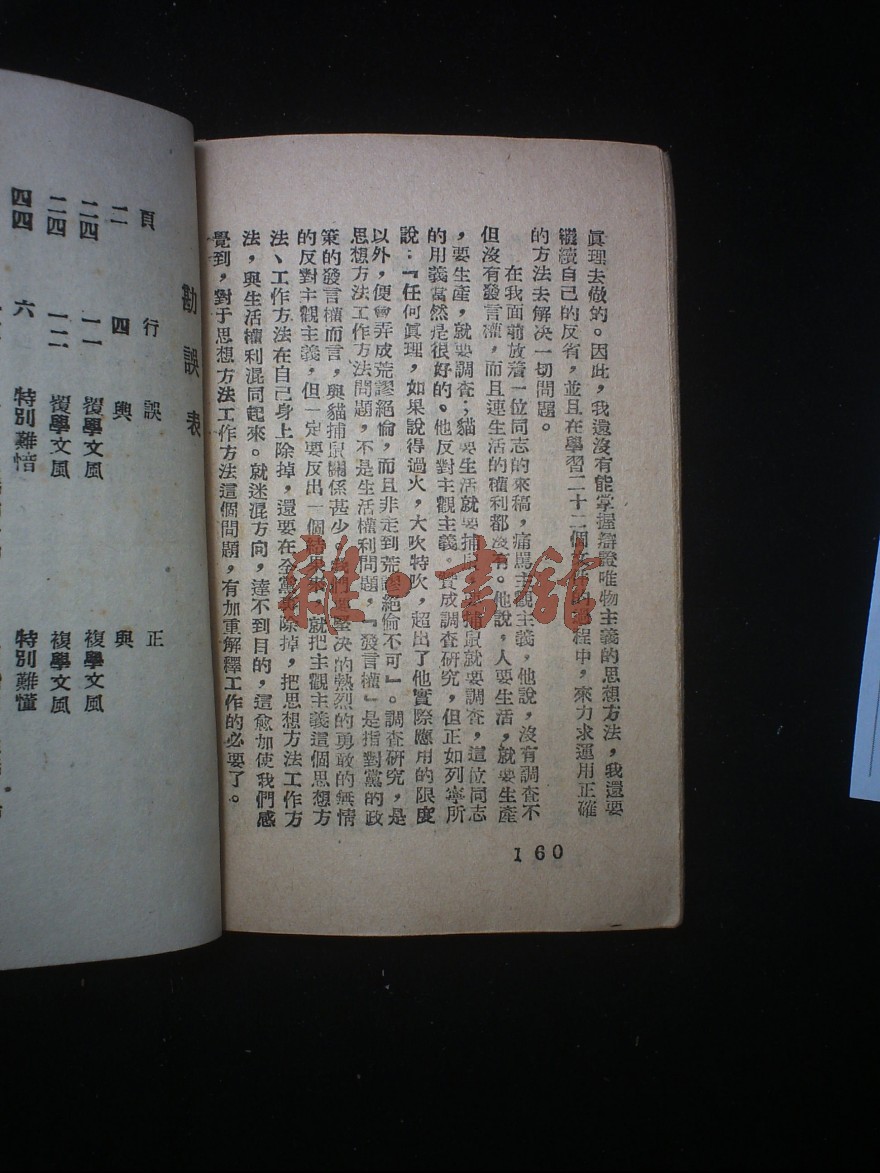 眞理去做的。因此，我還沒有能掌握辯證唯物主義的思想方法，我還要
繼續自己的反省，並且在學習二十二個文件的過程中，來力求運用正確
的方法去解决一切問題。
在我面前放着一位同志的來稿，痛罵主觀主義，他說，沒有調查不
但沒有發言權，而且連生活的權利都沒有。他說，人要生活，就要生產
，要生產，就要調查；貓要生活就要捕鼠，捕鼠就要調查，這位同志
的用義當然是很好的。他反對主觀主義，贊成調查研究，但正如列寧所
說：『任何眞理，如果說得過火，大吹特吹，超出了他實際應用的限度
以外，便會弄成荒謬絕倫，而且非走到荒謬絕倫不可』。調查研究，是
思想方法工作方法問題，不是生活權利問題，『發言權』是指對黨的政
策的發言權而言，與貓捕鼠關係甚少。我們要堅决的熱烈的勇敢的無情
的反對主觀主義，但一定要反出一個結果來，就把主觀主義這個思想方
法、工作方法在自己身上除掉，還要在全黨裏除掉，把思想方法工作方
法，與生活權利混同起來。就迷混方向，達不到目的，這愈加使我們感
覺到，對于思想方法工作方法這個問題，有加重解釋工作的必要了。
160
雜·書舘
勘誤表
頁 行 誤 正
二 四 興 與
二四 一一 覆學文風 複學文風
二四 一二 覆學文風 複學文風
四四 六 特別難愔 特別難懂